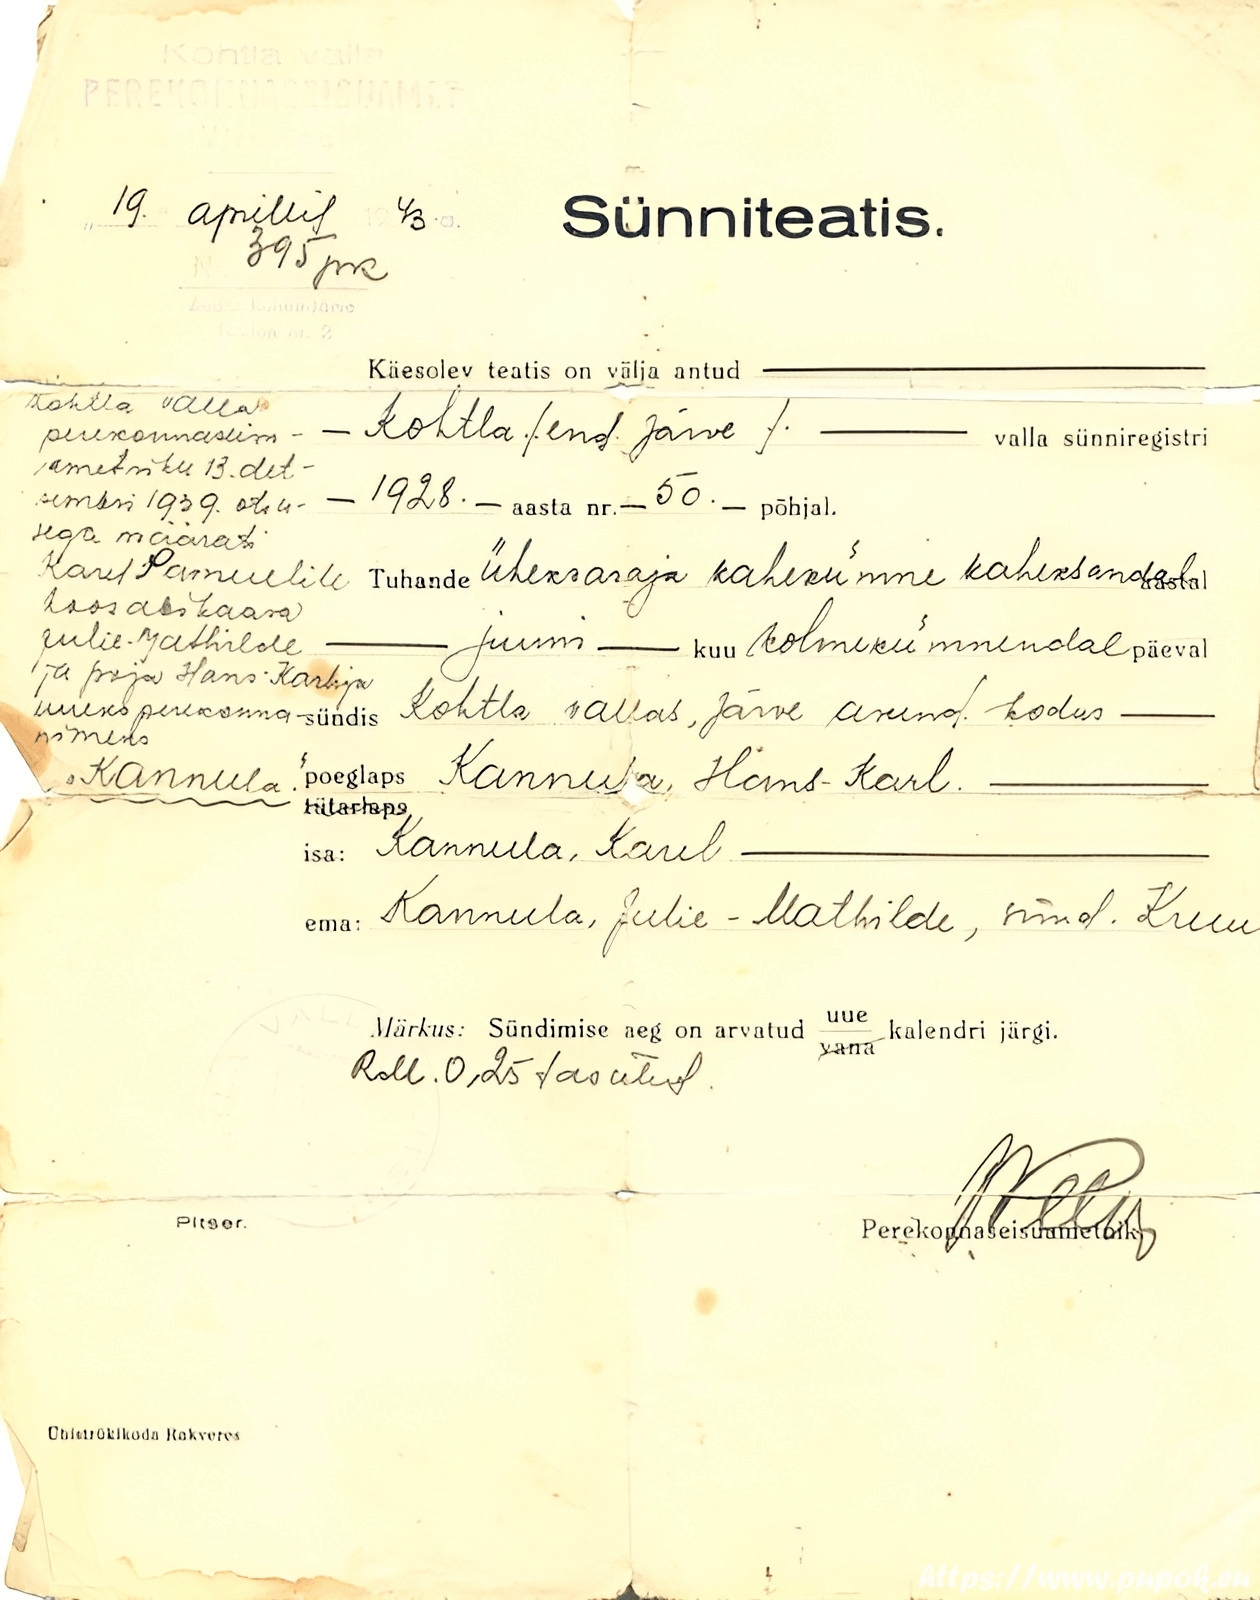 Kohtla valla
PEREKONNASEISUAMET
"19. aprillil 1943.a.
395 prk
Sünniteatis.
Käesolev teatis on välja antud
— Kohtla /end. Järve /. — valla sünniregistri
— 1928. — aasta nr. — 50. — põhjal.
Tuhande üheksasaja kahekümne kaheksandal aastal
— juuni — kuu kolmekümnendal päeval
sündis Kohtla vallas, Järve asund. kodus —
poeglaps Kannula, Hans-Karl. —
tütarlaps
isa: Kannula, Karel —
ema: Kannula, Julie-Mathilde, sünd. Kruu
Kohtla valla
perekonnaseisu-
ametniku 13. det-
sembri 1939. otsu-
sega määrati
Karel Samuelile
koos abikaasa
Julie-Mathilde
ja poja Hans-Karliga
uueks perekonna-
nimeks
"Kannula."
Märkus: Sündimise aeg on arvatud uue vana kalendri järgi.
RM. 0,25 tasutud.
Pitser.
Perekonnaseisuametnik
Ühistrükikoda Rakveres
https://www.pupok.eu